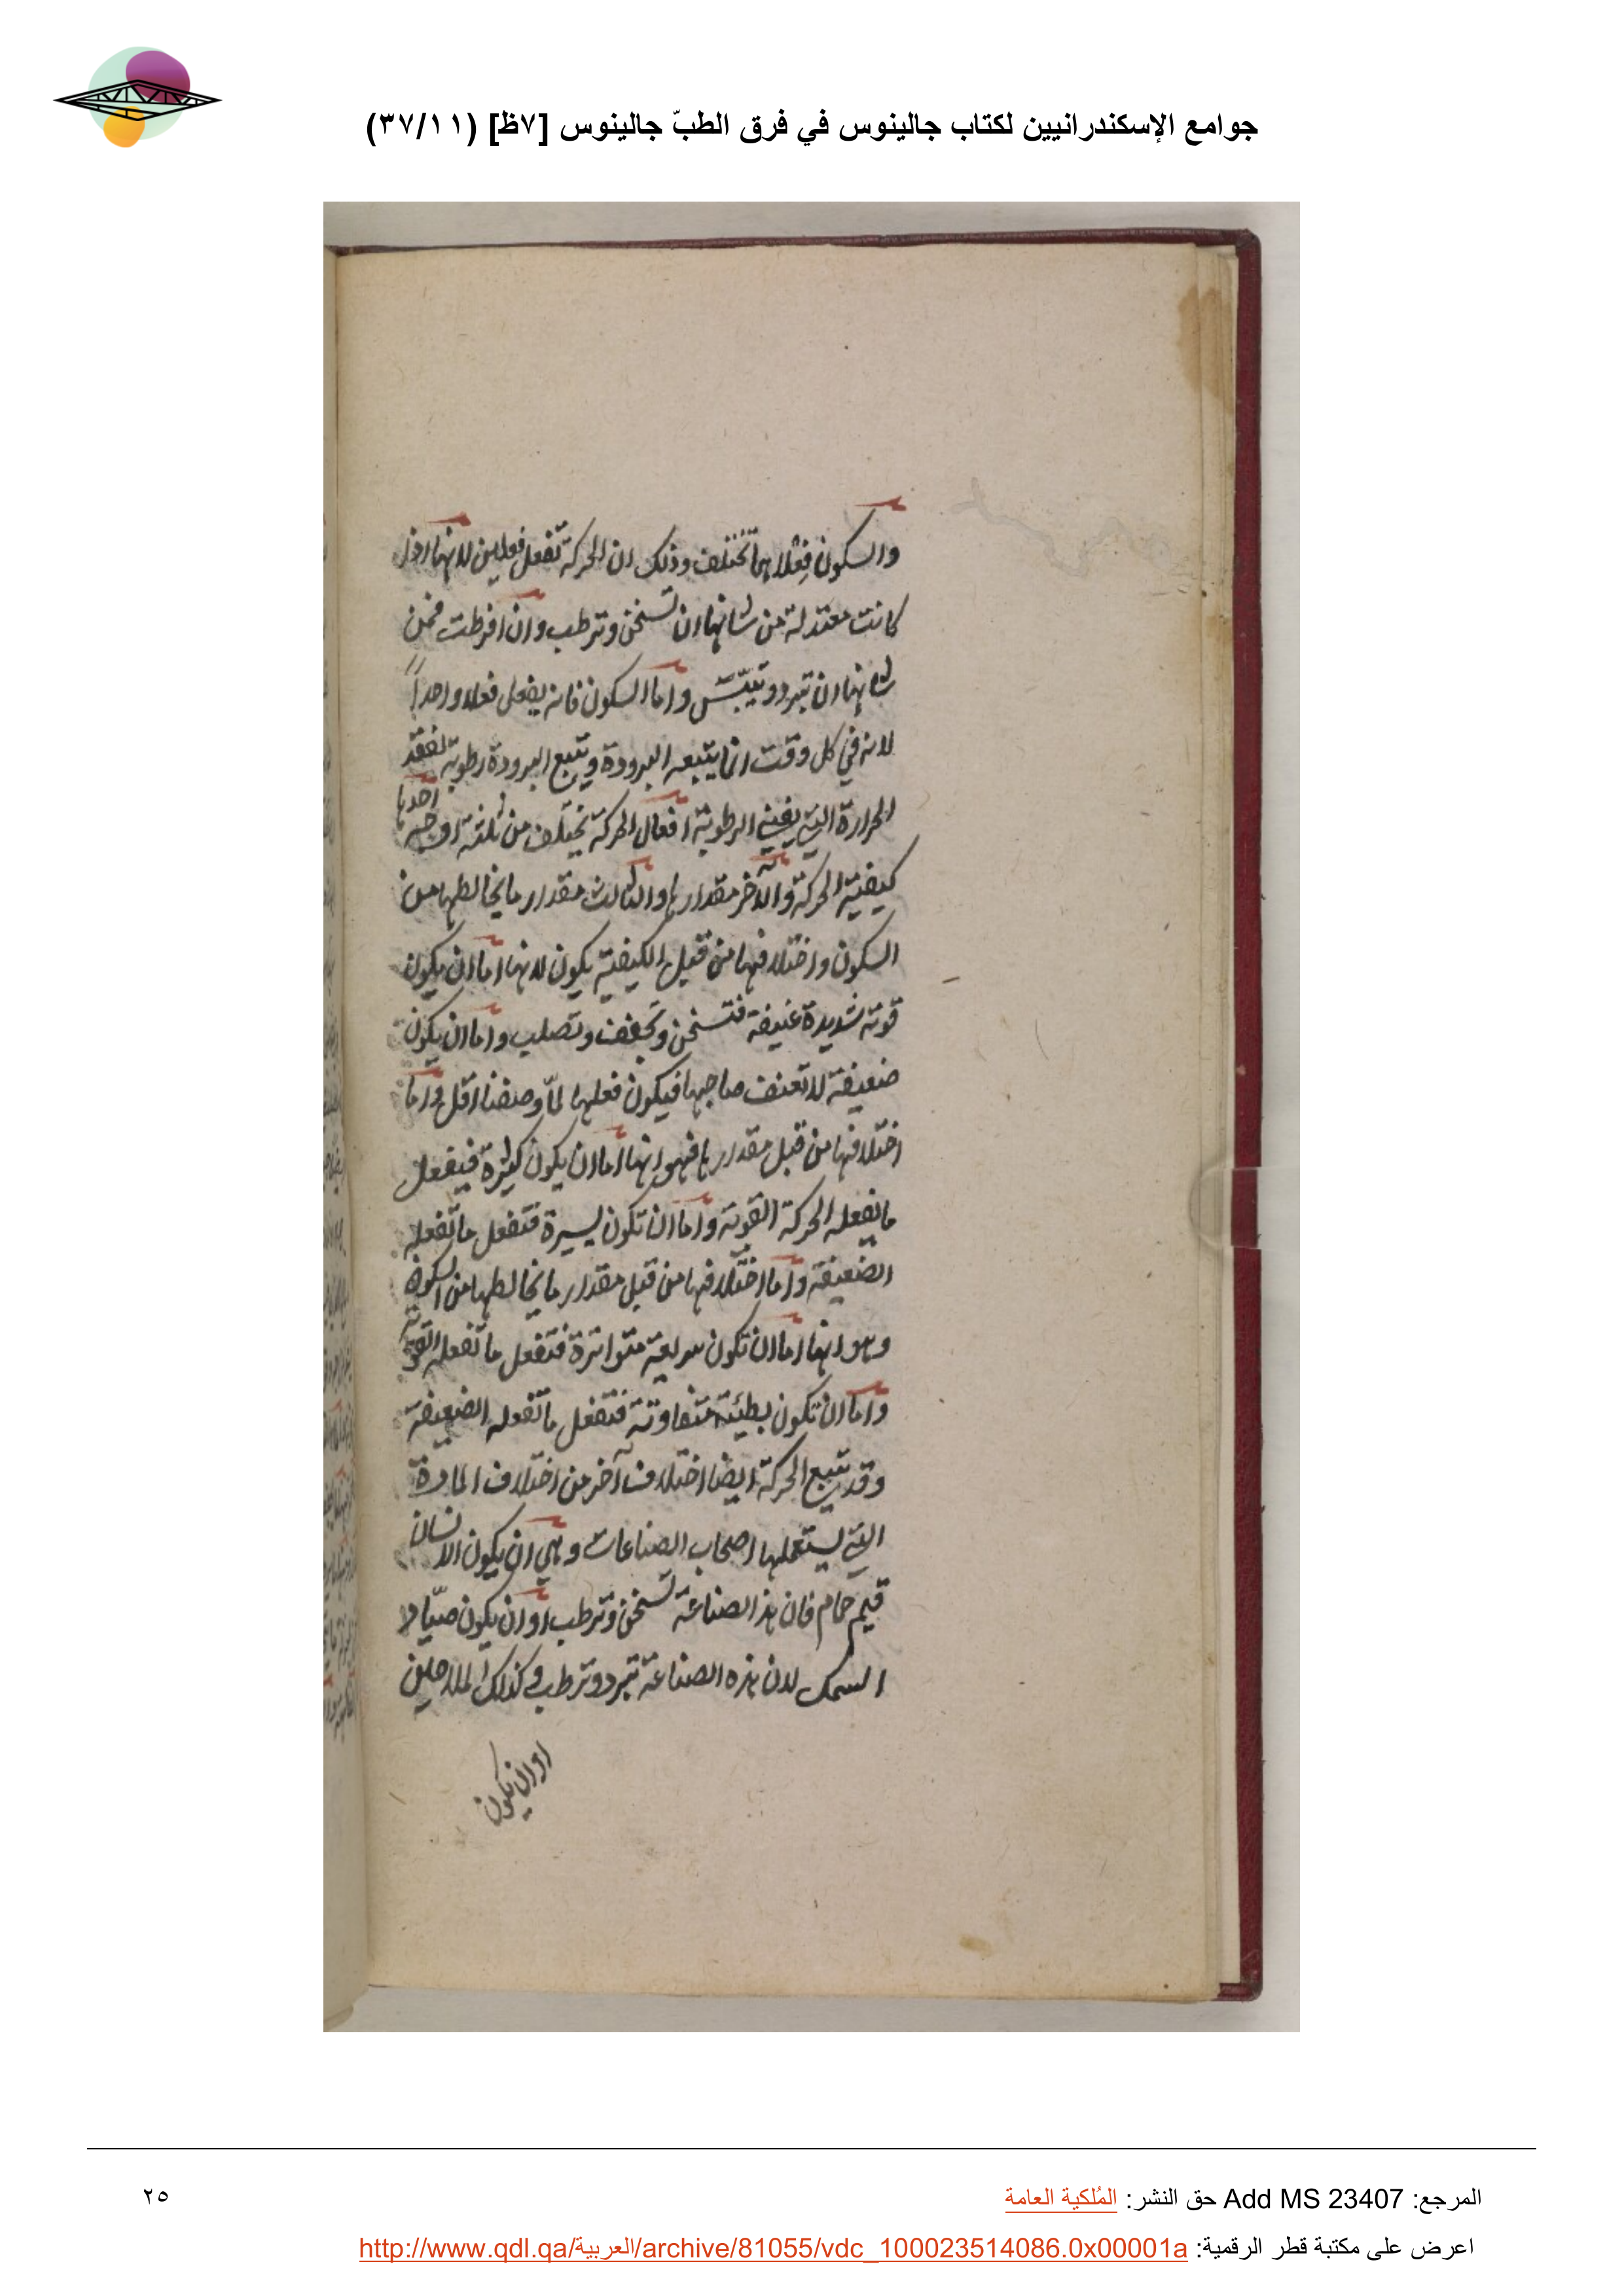 جوامع الإسكندرانيين لكتاب جالينوس في فرق الطبّ جالينوس [٧ظ] (٣٧/١١)
والسكون فعلاهما تختلف وذلك ان الحركة تفعل فعلين لانها اذا
كانت معتدلة من شانها ان تسخن وترطب وان افرطت فمن
شانها ان تبرد وتيبّس واما السكون فانه يفعل فعلا واحداً
لانه في كل وقت انما يتبعه البرودة ويتبع البرودة رطوبة لفقد
الحرارة التي يفني الرطوبة افعال الحركة يختلف من ثلثة اوجه احدها
كيفية الحركة والآخر مقدارها والثالث مقدار ما يخالطها من
السكون واختلافها من قبل الكيفية يكون لانها اما ان يكون
قوية شديدة عنيفة فتسخن وتجفف وتصلب واما ان يكون
ضعيفة لا تعنف صاحبها فيكون فعلها لمّا وصفنا اقل واما
اختلافها من قبل مقدارها فهو انها اما ان يكون كثيرة فيفعل
ما يفعله الحركة القوية واما ان تكون يسيرة فتفعل ما تفعله
الضعيفة واما اختلافها من قبل مقدار ما يخالطها من السكون
وهو انها اما ان تكون سريعة متواترة فتفعل ما تفعله القوية
واما ان تكون بطيئة متفاوتة فتفعل ما تفعله الضعيفة
وقد يتبع الحركة ايضا اختلاف آخر من اختلاف المادة
التي يستعملها اصحاب الصناعات وهي ان يكون الانسان
قيم حمام فان هذا الصناعة تسخن وترطب او ان يكون صيّاد
السمك لان هذه الصناعة تبرد وترطب وكذلك الملاحين
او ان يكون
المرجع: Add MS 23407 حق النشر: المُلكية العامة
٢٥
اعرض على مكتبة قطر الرقمية: http://www.qdl.qa/العربية/archive/81055/vdc_100023514086.0x00001a